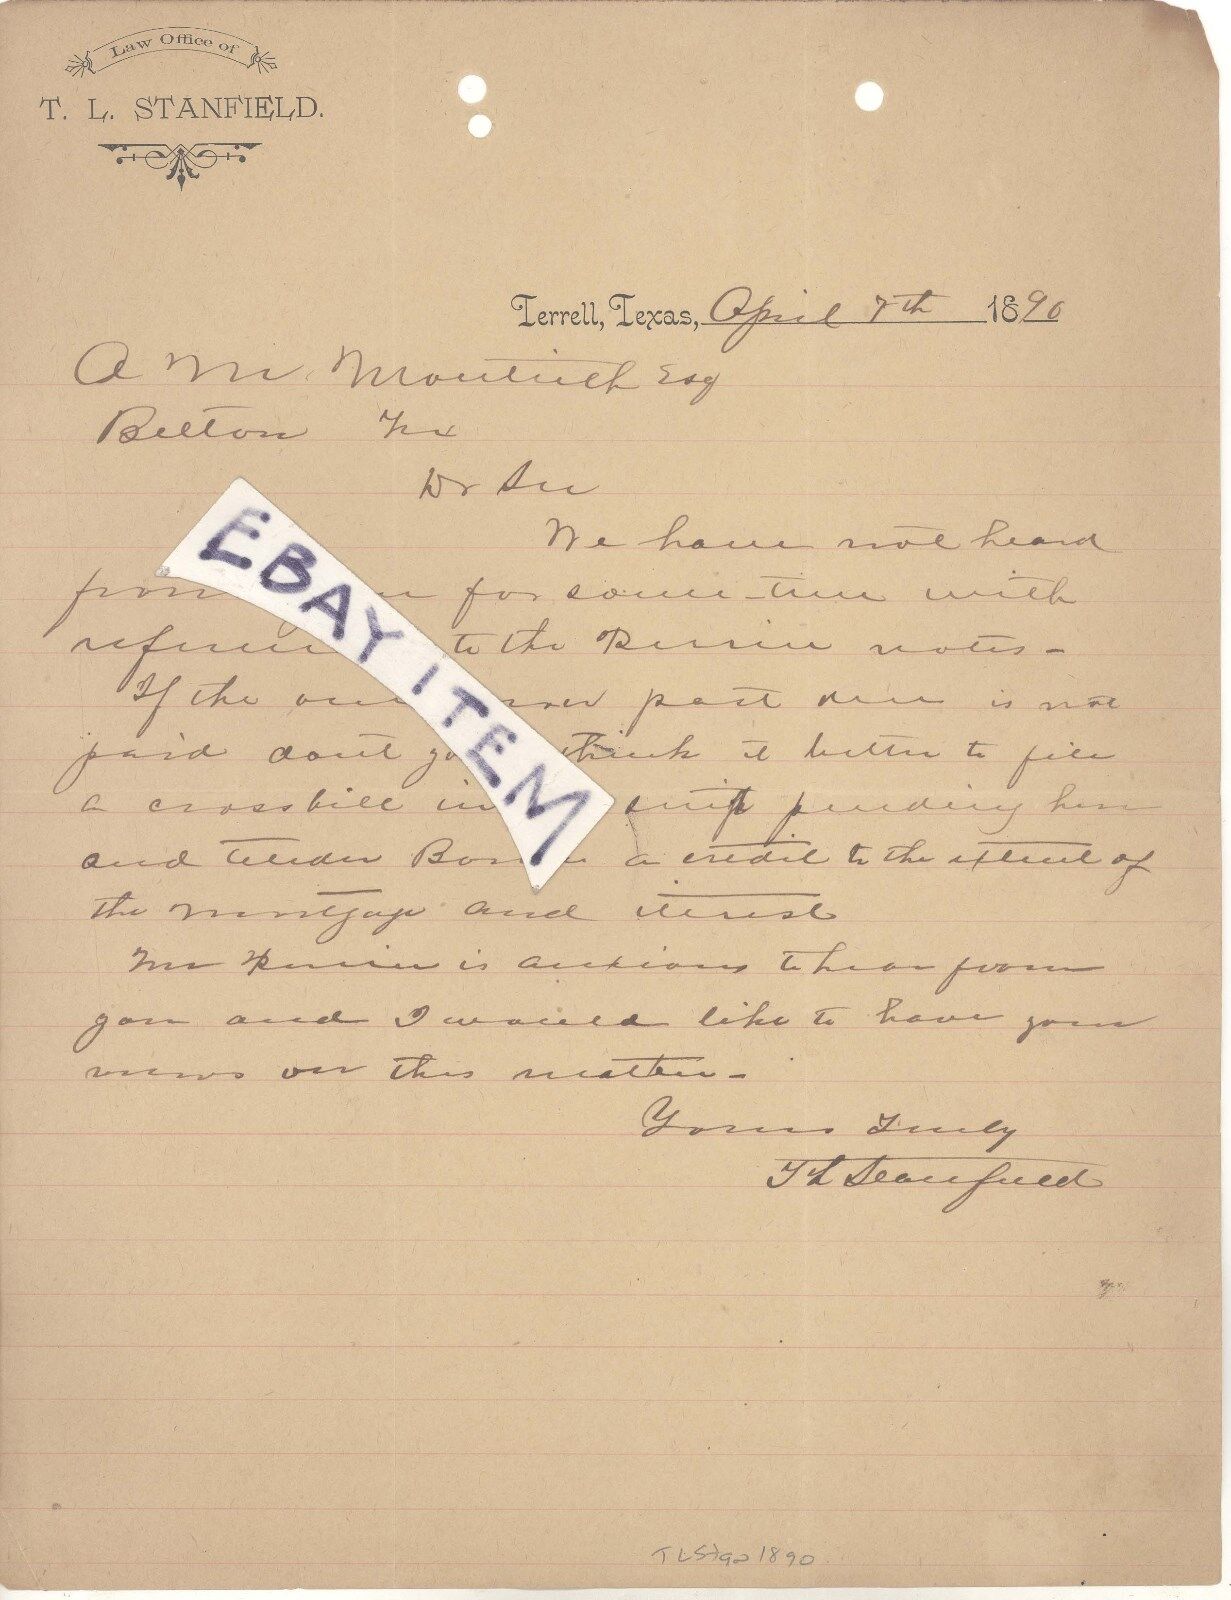 Law Office of
T. L. STANFIELD.
Terrell, Texas, April 7th 1890
A M Monteith Esq
Belton Tex
Dr Sir
We have not heard
from for some time with
to the Perrine notes-
If the one now past due is not
paid dont you think it better to file
a crossbill in suit pending here
and tender a credit to the extent of
the mortgage and interest
Mr Perrine is anxious to hear from
you and I would like to have your
views on this matter-
Yours Truly
T L Stanfield
EBAY ITEM
1890